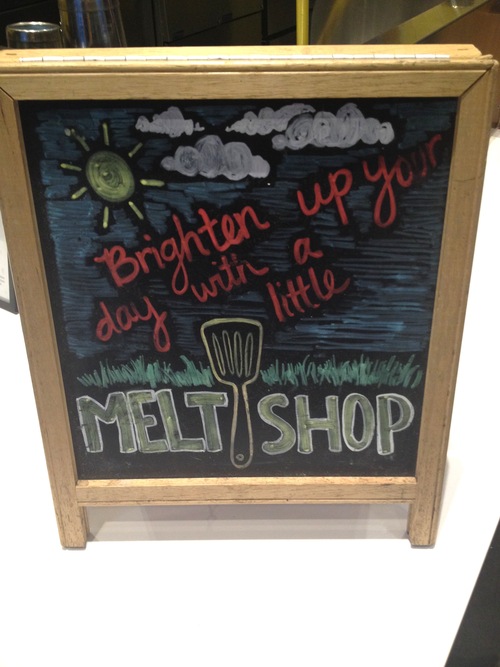 Brighten up your
day with a
little
MELT SHOP